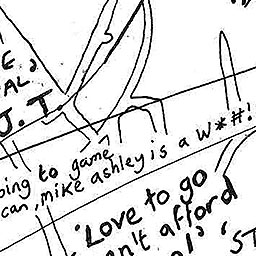 E
AL,
J.T.
oing to game
can, mike ashley is a W*#!
'Love to go
n't afford
ST